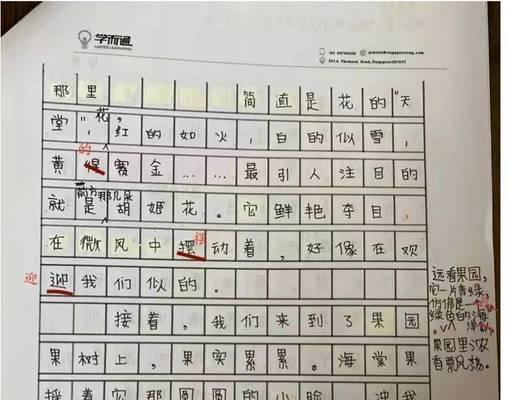 学而通
那里 简直是花的“天
堂”,花,红的如火,白的似雪,
的
黄得赛金……最引人注目的
前方那几朵
就是胡姬花。它鲜艳夺目,
摆
在微风中摆动着,好像在欢
迎
迎我们似的。
接着,我们来到了果园
果树上,果实累累。海棠果
摇着它那圆圆的小脸,冲我
远看果园,
它一片青绿,
仿佛是一个
绿色的海
洋
果园里浓
香飘荡。